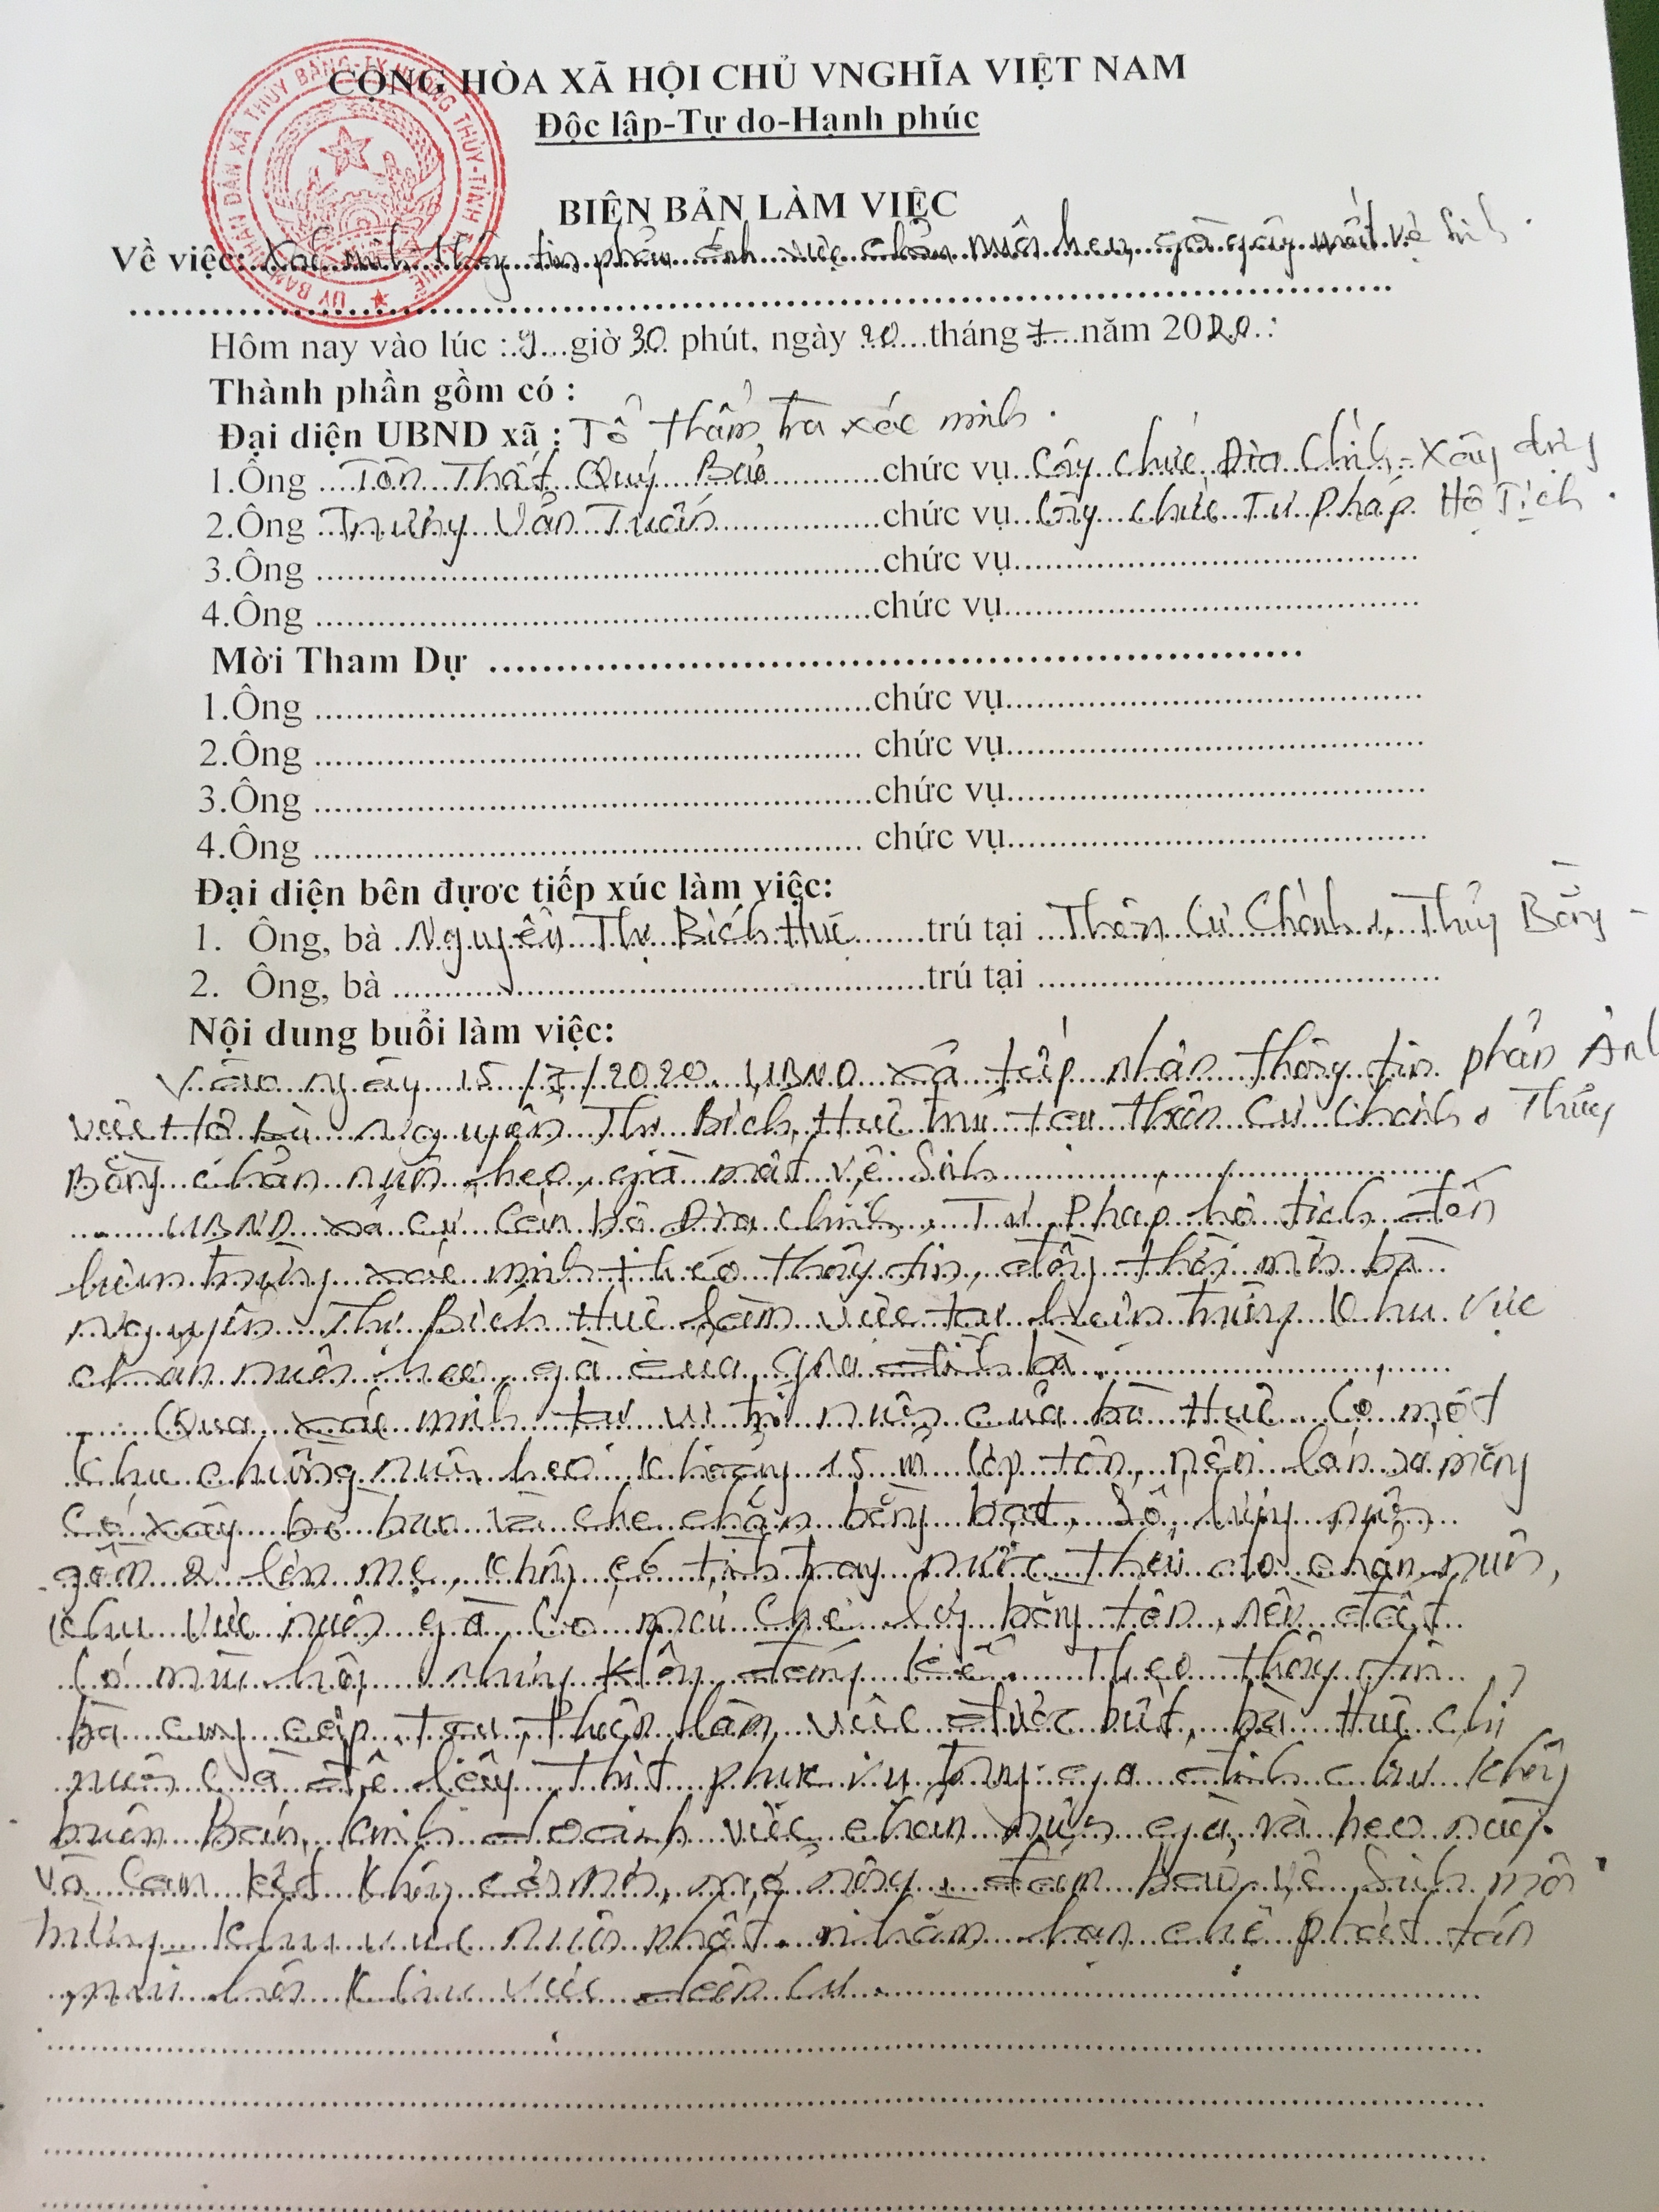 CỘNG HÒA XÃ HỘI CHỦ VNGHĨA VIỆT NAM
Độc lập-Tự do-Hạnh phúc
BIÊN BẢN LÀM VIỆC
Về việc: Xác minh thông tin phản ánh việc chăn nuôi heo, gà gây mất vệ sinh.
Hôm nay vào lúc : 9 giờ 30 phút, ngày 20 tháng 7 năm 2020.
Thành phần gồm có :
Đại diện UBND xã : Tổ thẩm tra xác minh.
1.Ông Tôn Thất Quý Bảo chức vụ Công chức Địa Chính - Xây dựng
2.Ông Trương Văn Tuấn chức vụ Công chức Tư pháp Hộ Tịch.
3.Ông chức vụ
4.Ông chức vụ
Mời Tham Dự
1.Ông chức vụ
2.Ông chức vụ
3.Ông chức vụ
4.Ông chức vụ
Đại diện bên được tiếp xúc làm việc:
1. Ông, bà Nguyễn Thị Bích Huệ trú tại Thôn Cư Chánh 1, Thủy Bằng -
2. Ông, bà trú tại
Nội dung buổi làm việc:
Vào ngày 15/7/2020, UBND xã tiếp nhận thông tin phản Ánh
việc hộ bà Nguyễn Thị Bích Huệ trú tại thôn Cư Chánh 1 Thủy
Bằng chăn nuôi heo, gà mất vệ sinh
UBND xã cử Cán bộ Địa chính, Tư Pháp hộ tịch đến
hiện trường xác minh thông tin, đồng thời mời bà
Nguyễn Thị Bích Huệ làm việc tại hiện trường khu vực
chăn nuôi heo, gà của gia đình bà.
Qua xác minh tại vị trí nuôi của bà Huệ Có một
khu chuồng nuôi heo khoảng 15 m² lợp tôn, nền láng xi măng
Có xây bờ bao và che chắn bằng bạt, Số lượng nuôi
gồm 2 lợn mẹ, không có tình trạng nước thải do chăn nuôi,
khu vực nuôi gà Có mái che lợp bằng tôn, nền đất
Có mùi hôi, nhưng không đáng kể. Theo thông tin
bà cung cấp tại phiên làm việc được biết, bà Huệ chỉ
nuôi Gà để lấy thịt phục vụ trong gia đình chứ không
buôn Bán, kinh doanh việc chăn nuôi gà và heo này.
và Cam kết không cơi nới, mở rộng, đảm bảo vệ sinh môi
trường khu vực nuôi nhốt nhằm hạn chế phát tán
mùi hôi khu vực dân cư.